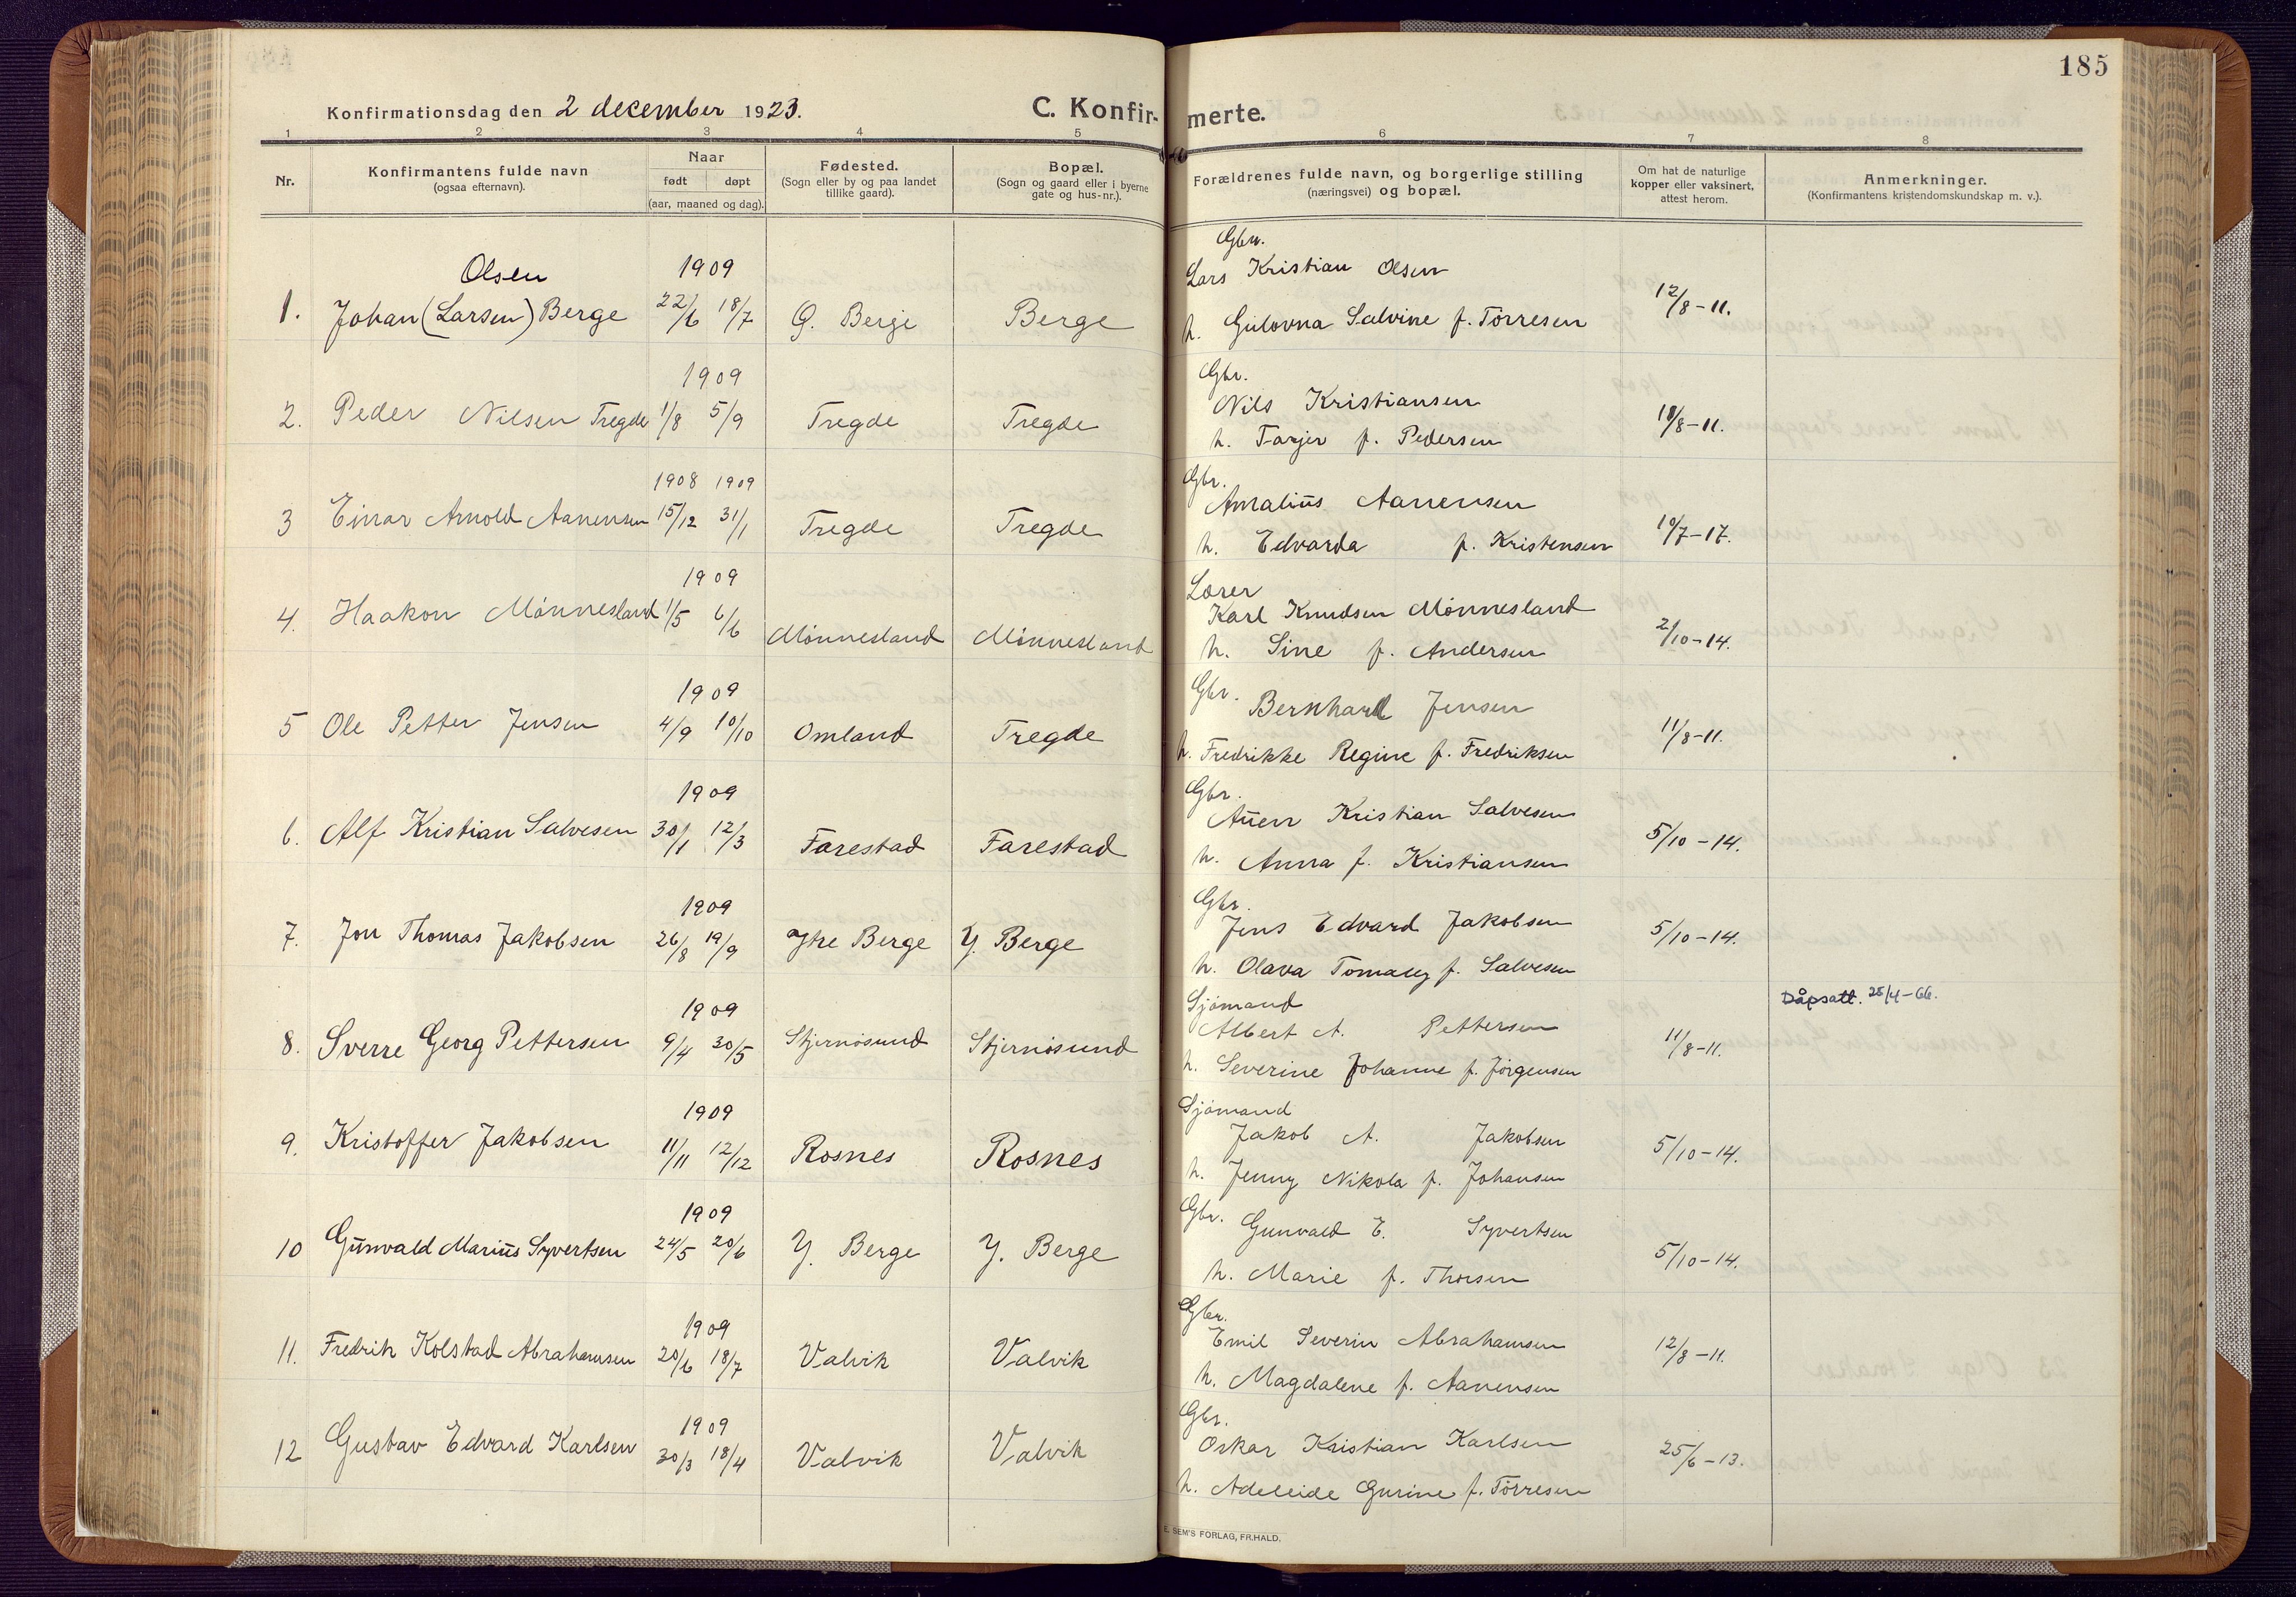 185
Konfirmationsdag den 2 december 1923.
C. Konfir- merte.
1 2 3 4 5 6 7 8
Nr.
Konfirmantens fulde navn
(ogsaa efternavn).
Naar
født døpt
(aar, maaned og dag).
Fødested.
(Sogn eller by og paa landet
tillike gaard).
Bopæl.
(Sogn og gaard eller i byerne
gate og hus-nr.).
Forældrenes fulde navn, og borgerlige stilling
(næringsvei) og bopæl.
Om hat de naturlige
kopper eller vaksinert,
attest herom.
Anmerkninger.
(Konfirmantens kristendomskundskap m. v.).
Gbr.
Olsen 1909 Lars Kristian Olsen
1. Johan (Larsen) Berge 22/6 18/7 Ø. Berge Berge 12/8-11.
h. Gulovna Salvine f. Törresen
1909 Gbr.
Nils Kristiansen
2. Peder Nilsen Tregde 1/8 5/9 Tregde Tregde 18/8-11.
h. Tarjer f. Pedersen
1908 1909 Gbr.
Amaliüs Aanensen
3 Einar Arnold Aanensen 15/12 31/1 Tregde Tregde 10/7-17.
h. Edvarda f. Kristensen
1909 Lærer
Karl Knudsen Mönnesland
4. Haakon Mönnesland 1/5 6/6 Mönnesland Mönnesland 2/10-14.
h. Sine f. Andersen
1909 Gbr.
Bernhard Jensen
5 Ole Petter Jensen 4/9 10/10 Omland Tregde 11/8-11.
h. Fredrikke Regine f. Fredriksen
1909 Gbr.
Aüen Kristian Salvesen
6. Alf Kristian Salvesen 30/1 12/3 Farestad Farestad 5/10-14.
h. Anna f. Kristiansen
1909 Gbr.
Jens Edvard Jakobsen
7. Jon Thomas Jakobsen 26/8 19/9 Ytre Berge Y. Berge 5/10-14.
h. Olava Tomasy f. Salvesen
Sjömand Dåpsatt. 25/4-66.
1909 Albert A. Pettersen
8. Sverre Georg Pettersen 9/4 30/5 Stjernösund Stjernösund 11/8-11.
h. Severine Johanne f. Jörgensen
1909 Sjömand
Jakob A. Jakobsen
9. Kristoffer Jakobsen 11/11 12/12 Rosnes Rosnes 5/10-14.
h. Jenny Nikola f. Johansen
1909 Gbr.
Gunvald E. Syvertsen
10 Günvald Mariüs Syvertsen 24/5 20/6 Y. Berge Y. Berge 5/10-14.
h. Marie f. Thorsen
1909 Gbr.
Emil Severin Abrahamsen
11. Fredrik Kolstad Abrahamsen 20/6 18/7 Valvik Valvik 12/8-11.
h. Magdalene f. Aanensen
1909 Gbr.
Oskar Kristian Karlsen
12 Gustav Edvard Karlsen 30/3 18/4 Valvik Valvik 25/6-13.
h. Adeleide Gurine f. Törresen
E. SEM'S FORLAG, FR.HALD.